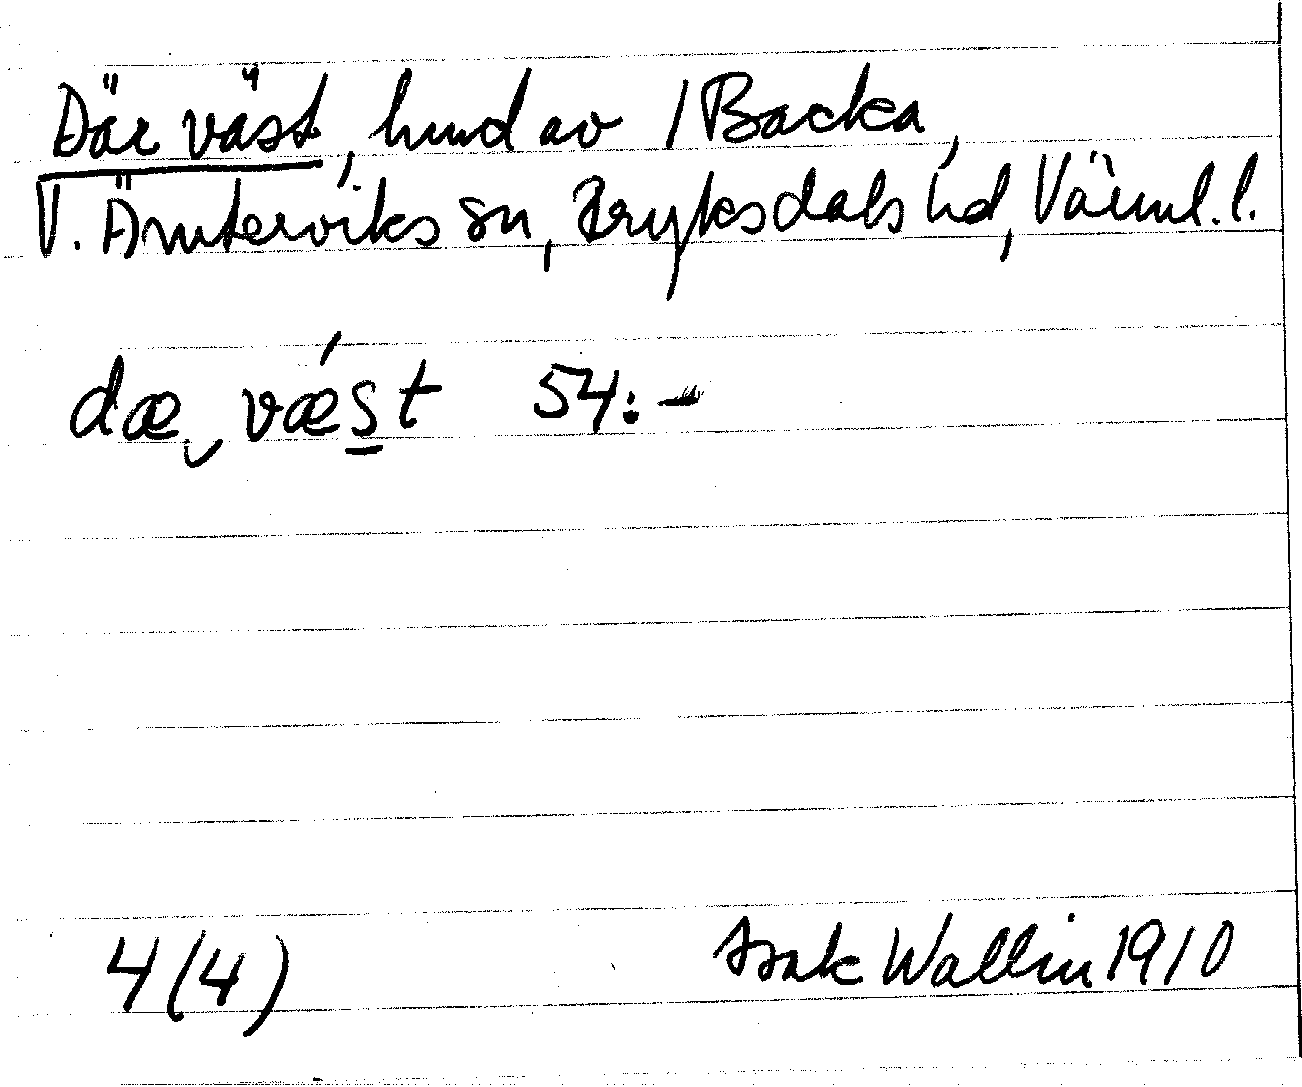 Där väst, hmd av 1 Backa,
V. Ämterviks sn, Fryksdals hd, Värml. l.
dæ vǽst 54:-
4(4) Isak Wallin 1910